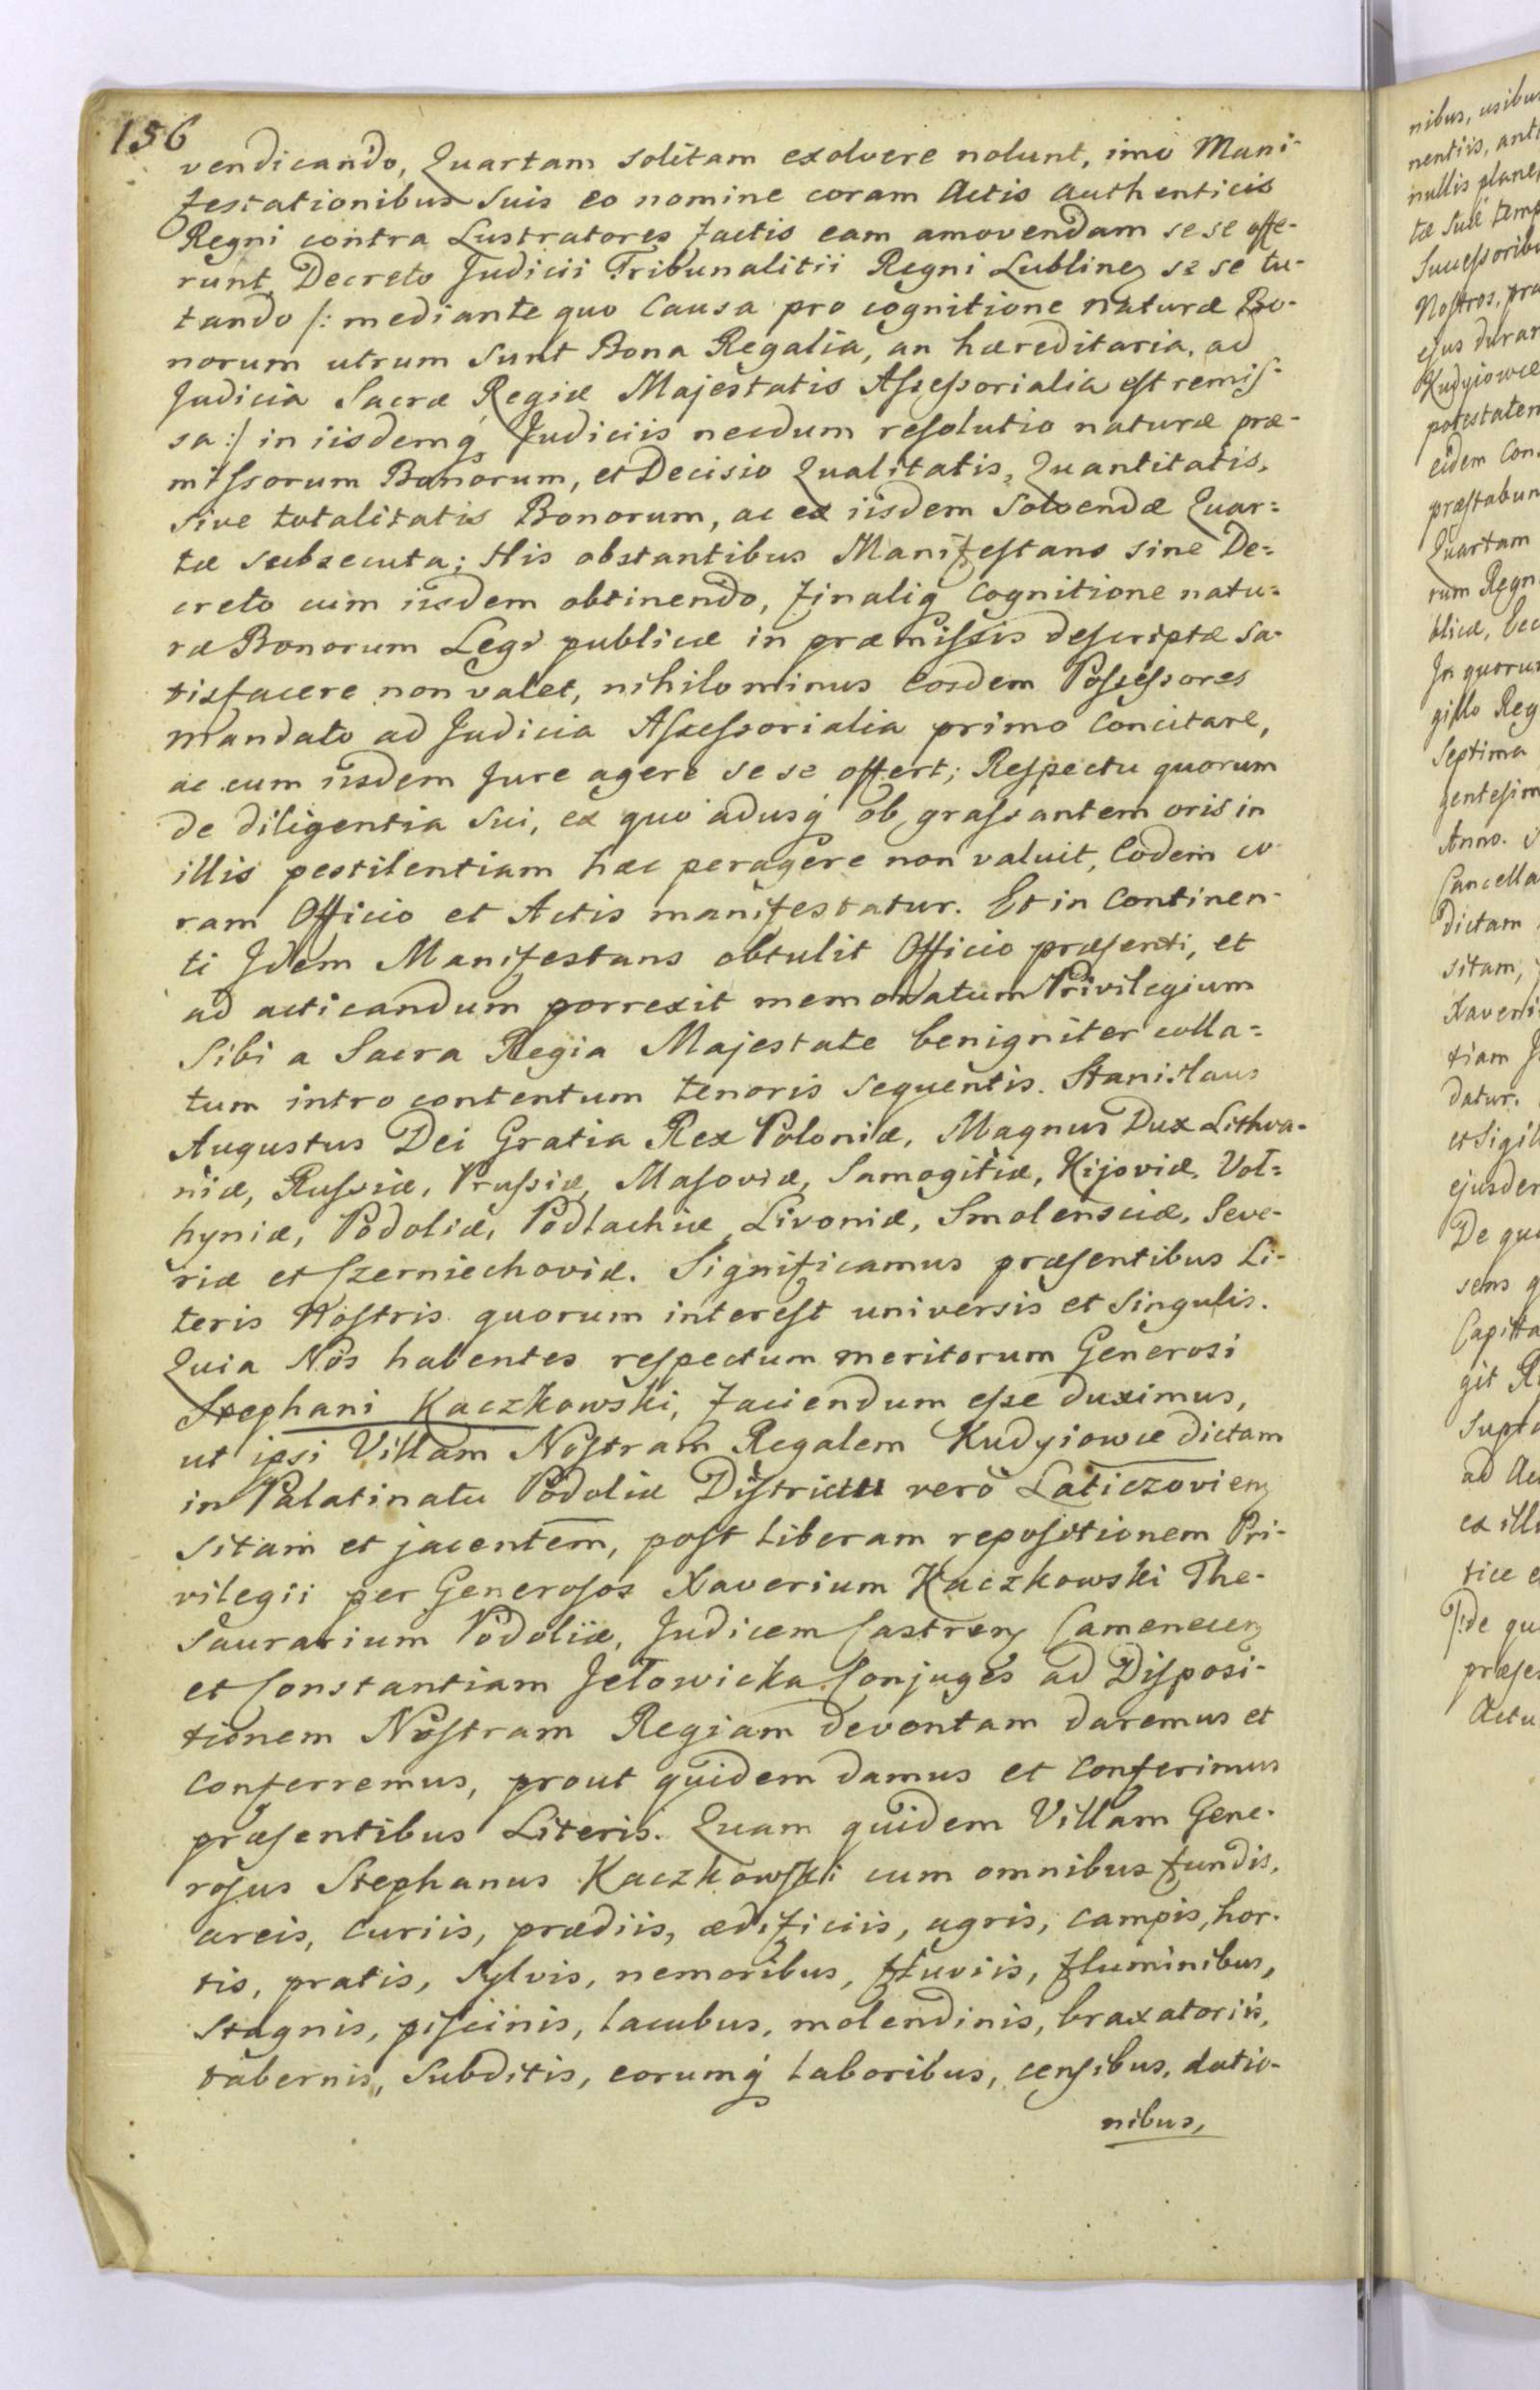 156
vendicando, Quartam solitam exolvere nolunt, imo Mani-
festationibus suis eo nomine coram Actis authenticis
Regni contra Lustratores factis eam amovendam se se offe-
runt, Decreto Judicii Tribunalitii Regni Lublineñ se se tu-
tando /: mediante quo Causa pro cognitione naturæ Bo-
norum utrum sunt Bona Regalia, an hæreditaria, ad
Judicia Sacræ Regiæ Majestatis Aſseſsorialia eſt remiſ-
sa :/ in iisdemq́ꝫ Judiciis necdum reſolutio naturæ præ-
miſsorum Bonorum, et Decisio Qualitatis, Quantitatis,
sive totalitatis Bonorum, ac ex iisdem Solvendæ Quar=
tæ subsecuta; His obstantibus Manifeſtans sine De=
creto cum iisdem obtinendo, finaliq́ꝫ Cognitione natu=
ræ Bonorum Legi publicæ in præmiſsis deſcriptæ sa-
tisfacere non valet, nihilominus Eosdem Poſseſsores
mandato ad Judicia Aſseſsorialia primo Concitare,
ac cum iisdem Jure agere se se offert; Reſpectu quorum
de diligentia sui, ex quo adusq́ꝫ ob graſsantem oris in
illis pestilentiam hæc peragere non valuit, Eodem co-
ram Officio et Actis manifestatur. Et in Continen-
ti Idem Manifestans obtulit Officio præſenti, et
ad acticandum porrexit memoratum Privilegium
Sibi a Sacra Regia Majestate benigniter colla=
tum intro contentum tenoris sequentis. Stanislaus
Augustus Dei Gratia Rex Poloniæ, Magnus Dux Lithva-
niæ, Ruſsiæ, Pruſsiæ, Maſoviæ, Samogitiæ, Kijoviæ, Vol=
hyniæ, Podoliæ, Podlachiæ, Livoniæ, Smolensciæ, Seve-
riæ et Czerniechoviæ. Significamus præſentibus Li-
teris Noſtris quorum intereſt universis et singulis.
Quia Nos habentes reſpectum meritorum Generosi
Stephani Kaczkowski, faciendum eſse duximus,
ut ipsi Villam Noſtram Regalem Kudyiowce dictam
in Palatinatu Podoliæ Diſtrictu vero Laticzovieñ
sitam et jacentem, poſt liberam repoſitionem Pri-
vilegii per Generoſos Xaverium Kaczkowski The-
saurarium Podoliæ, Judicem Castreñ Cameneceñ
et Constantiam Jełowicka Conjuges ad Diſposi-
tionem Noſtram Regiam deventam daremus et
Conferremus, prout quidem damus et Conferimus
præſentibus Literis. Quam quidem Villam Gene-
roſus Stephanus Kaczkowſki cum omnibus fundis,
areis, Curiis, prædiis, ædificiis, agris, campis, hor-
tis, pratis, sylvis, nemoribus, fluviis, fluminibus,
stagnis, piſciinis, lacubus, molendinis, braxatoriis,
tabernis, Subditis, eorumq́ꝫ laboribus, cenſibus, datio-
nibus,
nibus, usibus
nentiis,
nullis plane,
tæ suæ
Succeſsoribu
Noſtros,
ejus durar
Kudyiowce
potestatem
eidem Con
præſtabun
Quartam
rum Regn
blicæ,
In quorum
gillo Reg
Septima
genteſim
Anno.
Cancella
dictam
sitam,
Xaveri
tiam
datur.
et Sigil
ejusdem
De quo
sens
Capitta
git
Supta
ad
ex illo
tice
de qu
præſe
Actu